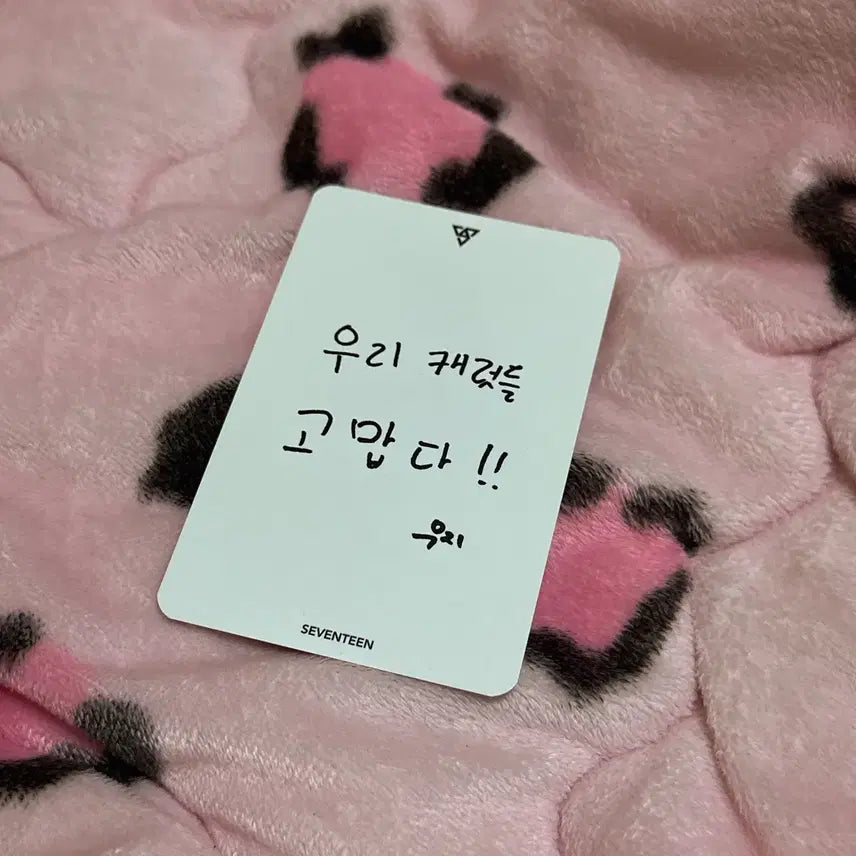 우리 캐럿들
고맙다!!
우지
SEVENTEEN